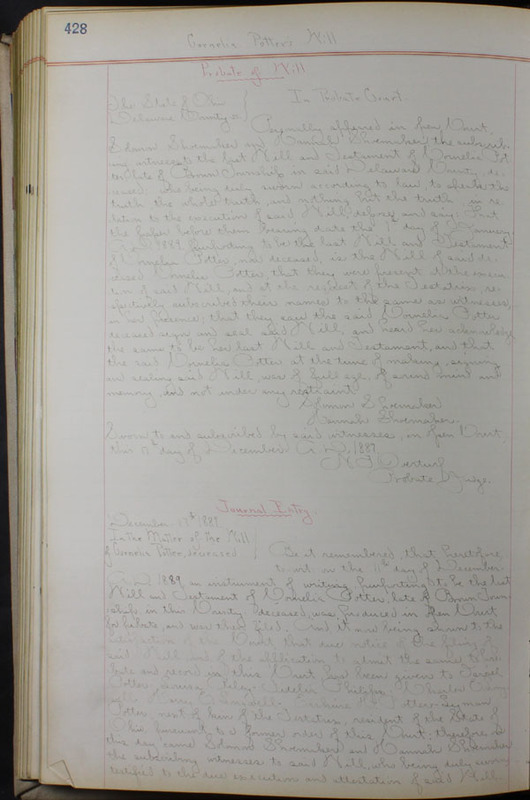 428
Cornelia Potter's Will
Probate of Will
The State of Ohio
Delaware County ss
In Probate Court.
Personally appeared in open Court,
Edmin Shoemaker and Hannah Shoemaker the subscrib-
ing witnesses to the last Will and Testament of Cornelia Pot
ter late of Township in said Delaware County, de-
ceased: who being duly sworn according to law, to speak the
truth the whole truth, and nothing but the truth, in re-
lation to the execution of said Will depose and say: That
the paper before them bearing date the day of January
A.D. 1889 purporting to be the last Will and Testament
of Cornelia Potter, now deceased, is the Will of said de-
ceased Cornelia Potter that they were present at the execu-
tion of said Will, and at the request of the Testatrix, re-
spectively subscribed their names to the same as witnesses,
in her presence; that they saw the said Cornelia Potter
deceased sign and seal said Will, and heard her acknowledge
the same to be her last Will and Testament, and that
the said Cornelia Potter at the time of making, signing
and sealing said Will, was of full age, of sound mind and
memory, and not under any restraint.
Shoemaker
Hannah Shoemaker
Sworn to and subscribed by said witnesses, in open Court,
this day of December A.D. 1889
Probate Judge.
Journal Entry.
December 17th 1889
In the Matter of the Will
of Cornelia Potter, deceased
Be it remembered, that heretofore,
to wit: on the day of December
A.D. 1889, an instrument of writing purporting to be the last
Will and Testament of Cornelia Potter, late of Town-
ship in this County deceased, was produced in open Court
for probate, and was then filed. And it now being shown to the
satisfaction of the Court that due notice of the filing of
said Will and of the application to admit the same to pro-
bate and record in this Court has been given to
Potter,
Potter, next of kin of the Testatrix, resident of the State of
Ohio pursuant to a former order of this Court: therefore
this day came Shoemaker and Hannah Shoemaker
the subscribing witnesses to said Will, who being duly sworn
testified to the due execution and attestation of said Will